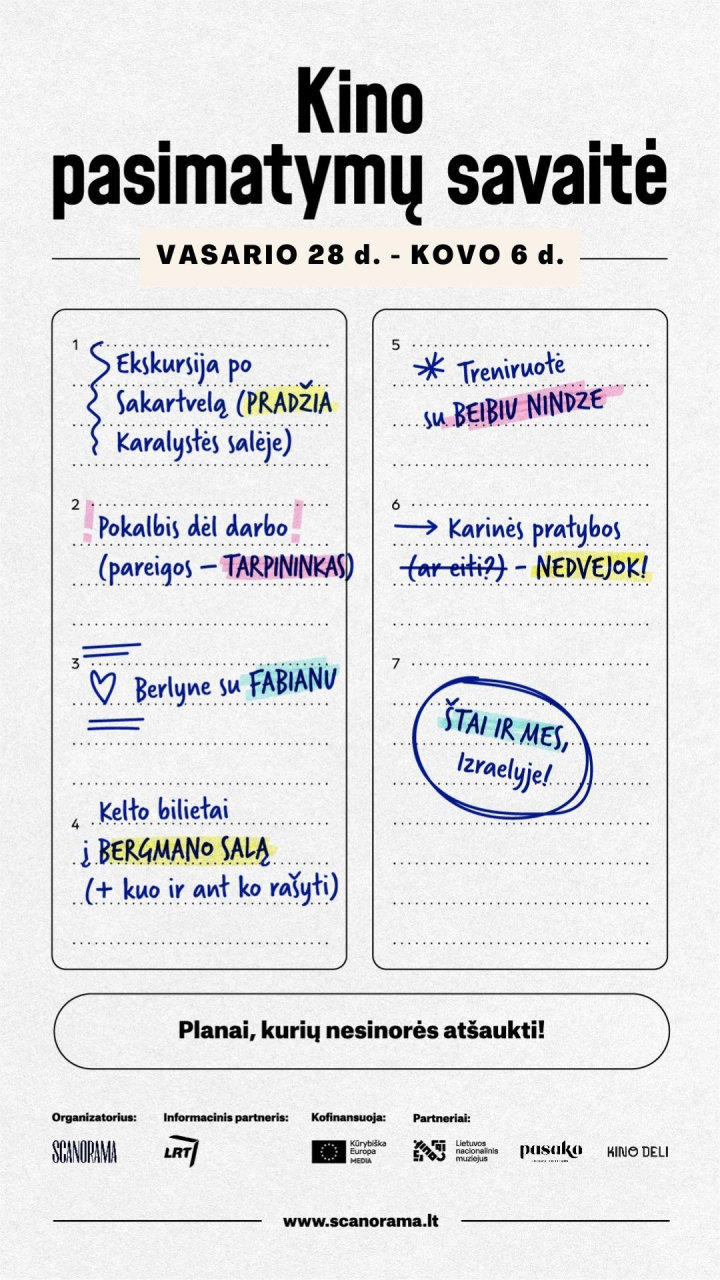 Kino
pasimatymų savaitė
VASARIO 28 d. - KOVO 6 d.
1
Ekskursija po
Sakartvelą (PRADŽIA
Karalystės salėje)
2
! Pokalbis dėl darbo !
(pareigos – TARPININKAS)
3
Berlyne su FABIANU
4
Kelto bilietai
į BERGMANO SALĄ
(+ kuo ir ant ko rašyti)
5
Treniruotė
su BEIBIU NINDZE
6
→ Karinės pratybos
(ar eiti?) – NEDVEJOK!
7
ŠTAI IR MES,
Izraelyje!
Planai, kurių nesinorės atšaukti!
Organizatorius: Informacinis partneris: Kofinansuoja: Partneriai:
SCANORAMA LRT Kūrybiška Europa MEDIA Lietuvos nacionalinis muziejus pasaka KINO DELI
www.scanorama.lt